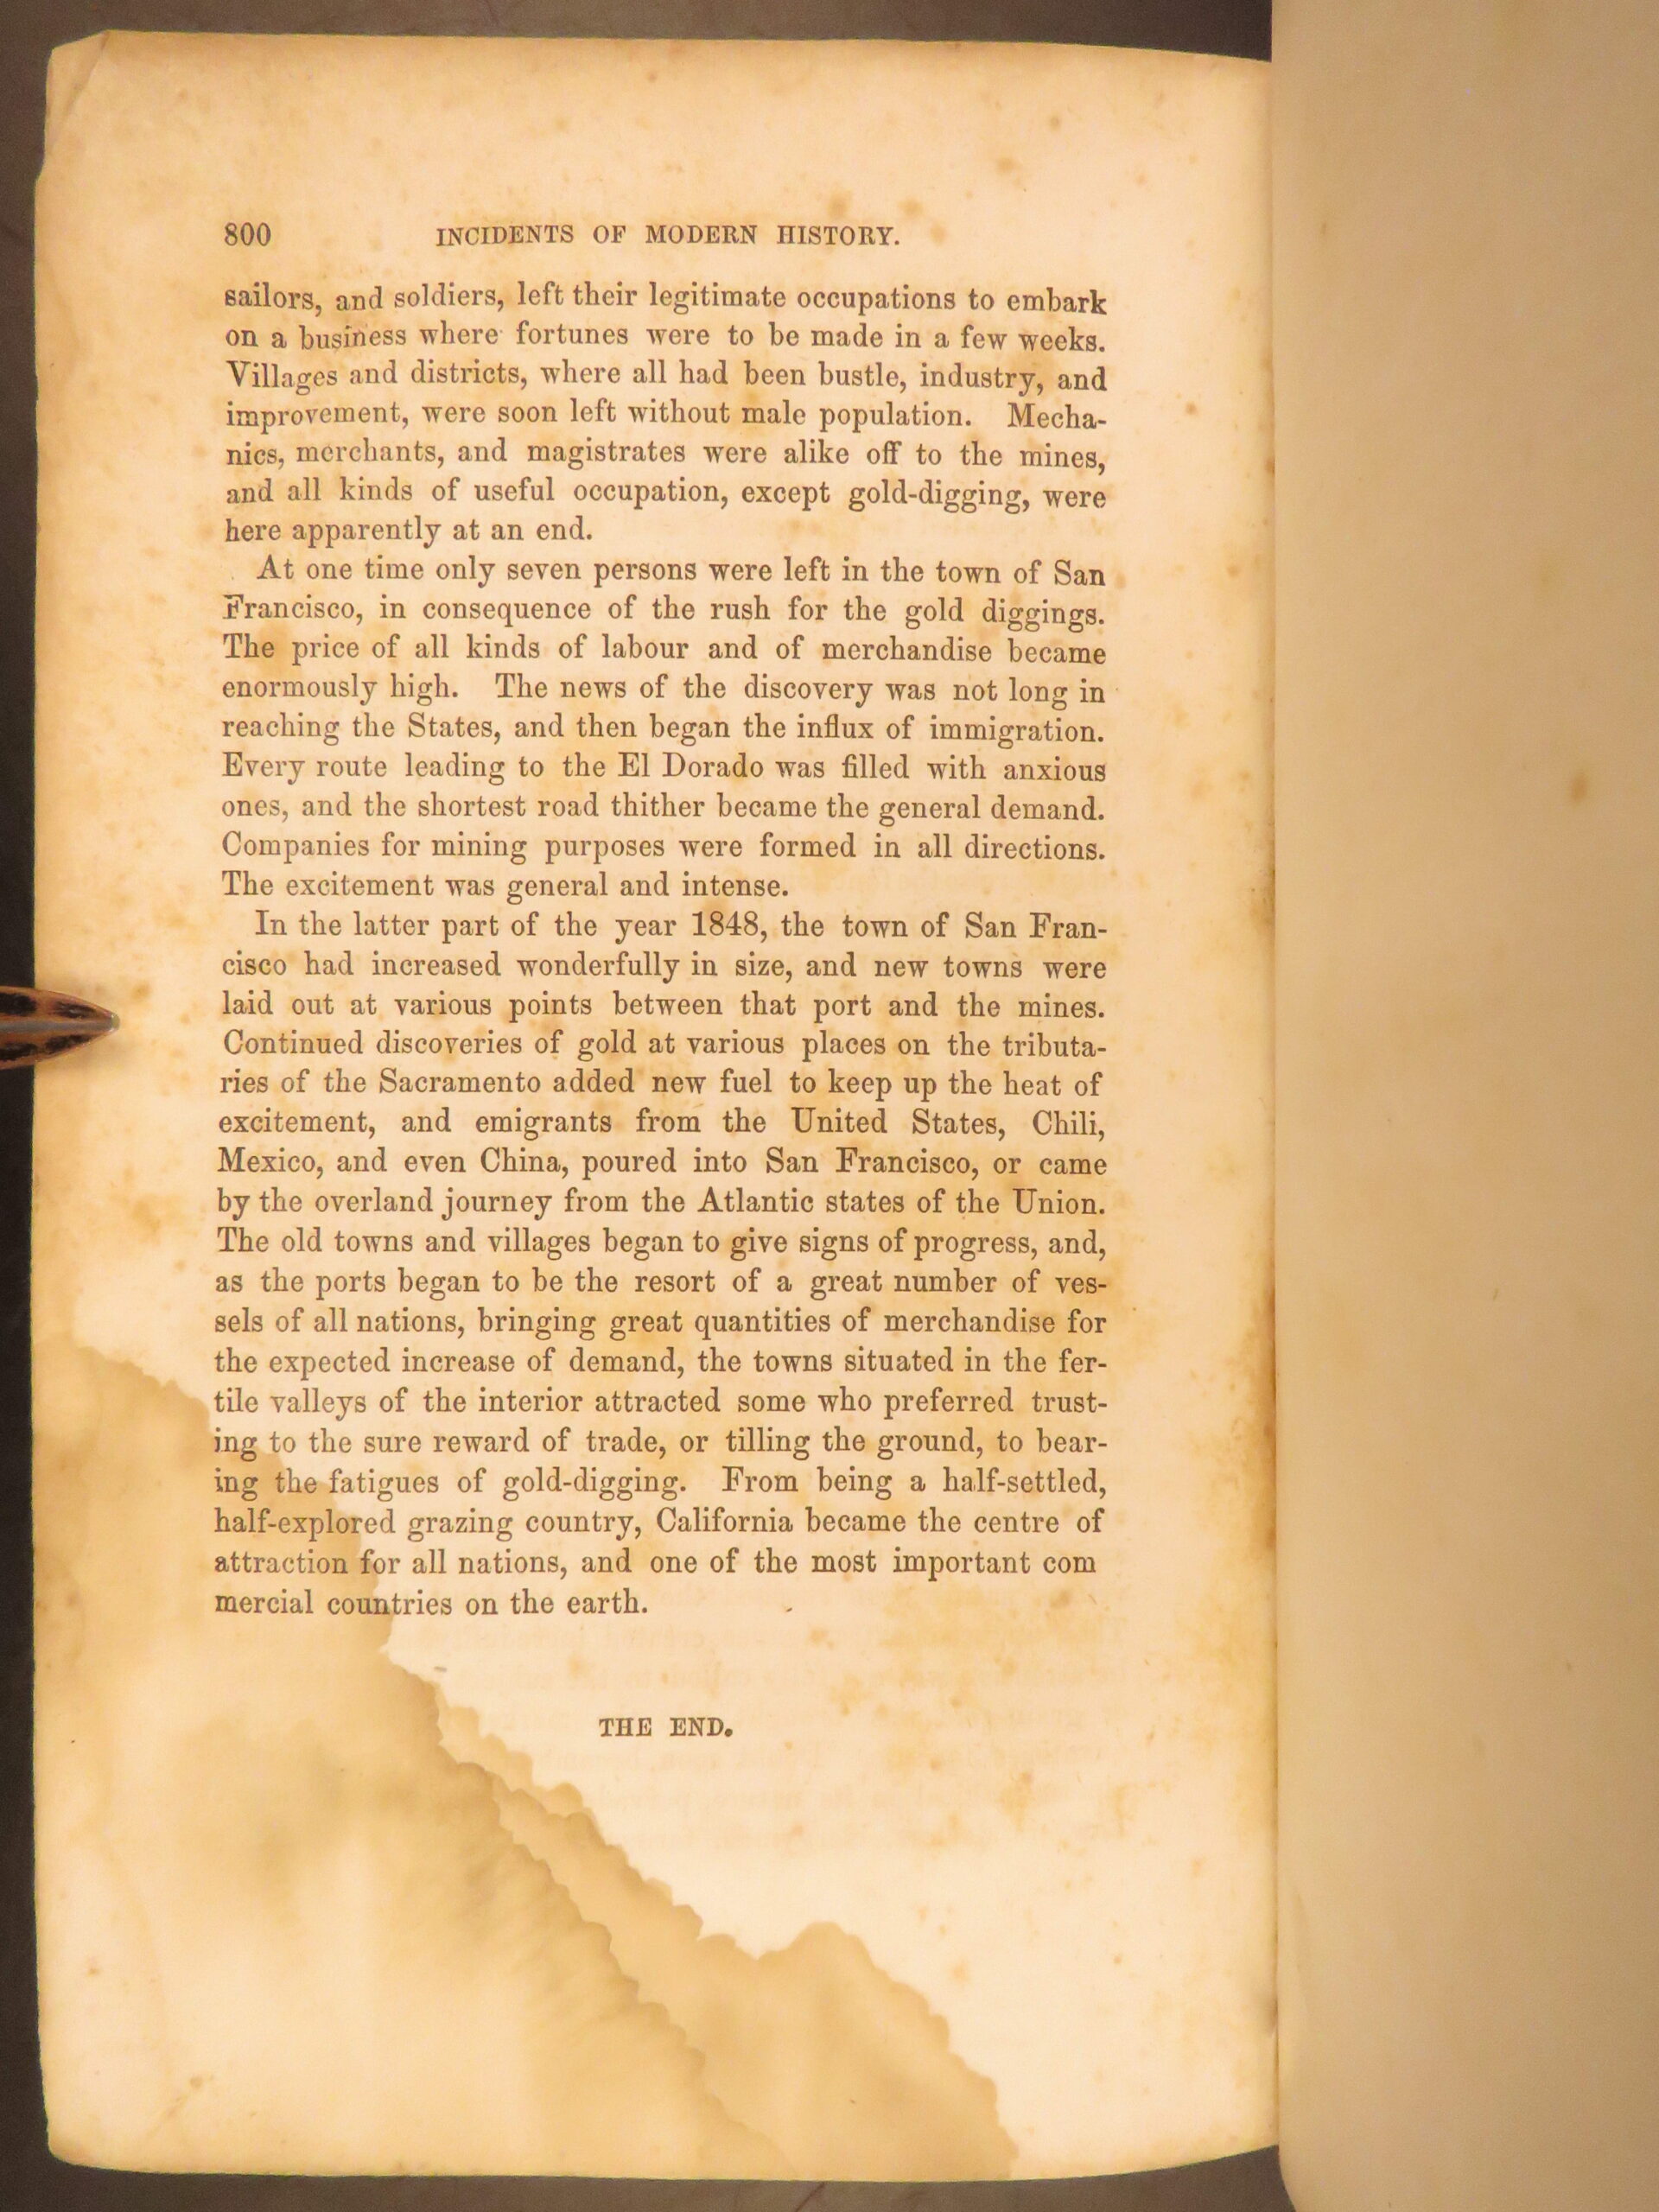 800 INCIDENTS OF MODERN HISTORY.
sailors, and soldiers, left their legitimate occupations to embark
on a business where fortunes were to be made in a few weeks.
Villages and districts, where all had been bustle, industry, and
improvement, were soon left without male population. Mecha-
nics, merchants, and magistrates were alike off to the mines,
and all kinds of useful occupation, except gold-digging, were
here apparently at an end.
At one time only seven persons were left in the town of San
Francisco, in consequence of the rush for the gold diggings.
The price of all kinds of labour and of merchandise became
enormously high. The news of the discovery was not long in
reaching the States, and then began the influx of immigration.
Every route leading to the El Dorado was filled with anxious
ones, and the shortest road thither became the general demand.
Companies for mining purposes were formed in all directions.
The excitement was general and intense.
In the latter part of the year 1848, the town of San Fran-
cisco had increased wonderfully in size, and new towns were
laid out at various points between that port and the mines.
Continued discoveries of gold at various places on the tributa-
ries of the Sacramento added new fuel to keep up the heat of
excitement, and emigrants from the United States, Chili,
Mexico, and even China, poured into San Francisco, or came
by the overland journey from the Atlantic states of the Union.
The old towns and villages began to give signs of progress, and,
as the ports began to be the resort of a great number of ves-
sels of all nations, bringing great quantities of merchandise for
the expected increase of demand, the towns situated in the fer-
tile valleys of the interior attracted some who preferred trust-
ing to the sure reward of trade, or tilling the ground, to bear-
ing the fatigues of gold-digging. From being a half-settled,
half-explored grazing country, California became the centre of
attraction for all nations, and one of the most important com
mercial countries on the earth.
THE END.